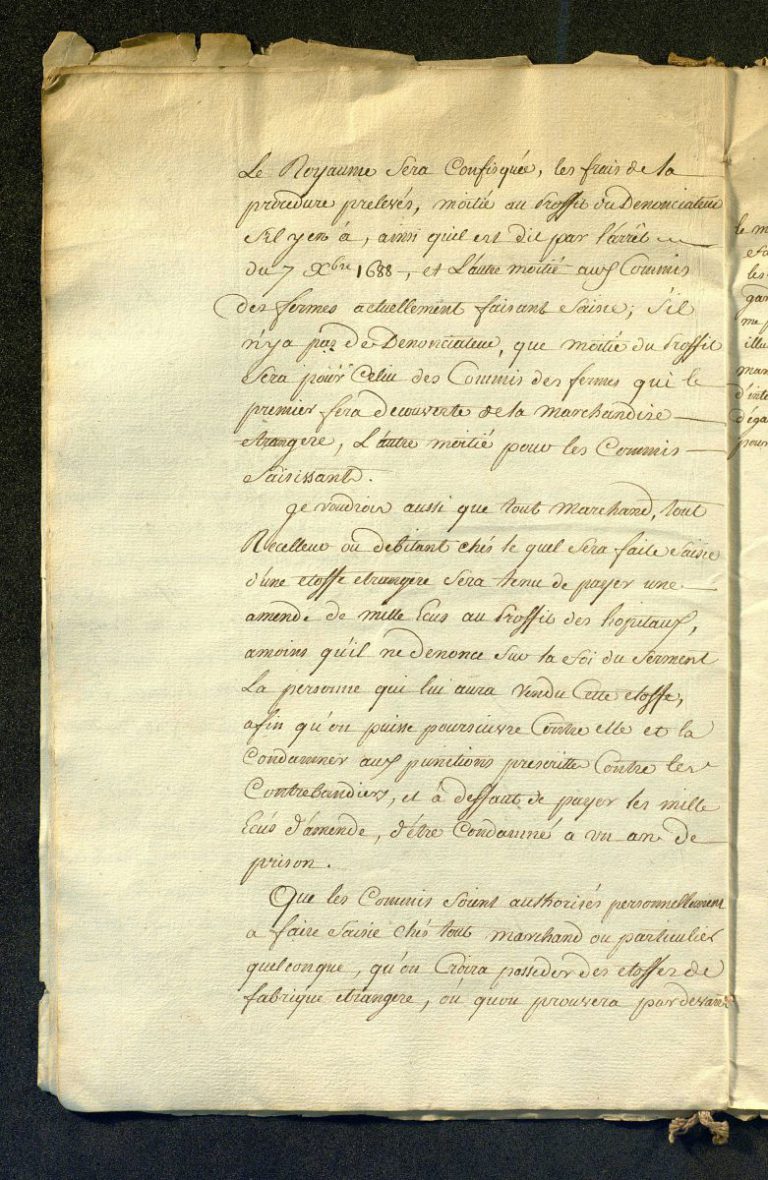 Le Royaume sera Confisquée, les frais de la
procedure prelevés, moitié au Proffit du Denonciateur
s'il y en à, ainsi qu'il est dit par l'arrêt
du 7 Xbre 1688, et L'autre moitié aux Commis
des fermes actuellement faisant Saisie; s'il
n'y a pas de Denonciateur, que moitié du Proffit
sera pour Celui des Commis des fermes qui le
premier fera decouverte de la marchandise
etrangere, L'autre moitié pour les Commis
Saisissants.
Je voudrois aussi que tout Marchand, tout
Recelleur ou debitant chés le quel sera faite Saisie
d'une etoffe etrangere sera tenu de payer une
amende de mille Ecus au Proffit des hopitaux,
amoins qu'il ne denonce sur la foi du serment
La personne qui lui aura vendu Cette etoffe,
afin qu'on puisse poursuivre Contre elle et la
Condamner aux punitions prescrittes Contre les
Contrebandiers, et à deffaut de payer les mille
Ecus d'amende, d'être Condamné a un an de
prison.
Que les Commis soient authorisés personnellement
a faire Saisie chés tout marchand ou particulier
quelconque, qu'on Croira posseder des etoffes de
fabrique etrangere, ou qu'on prouvera par devant
le m
les
gar
me p
illu
man
d'inte
d'éga
pour